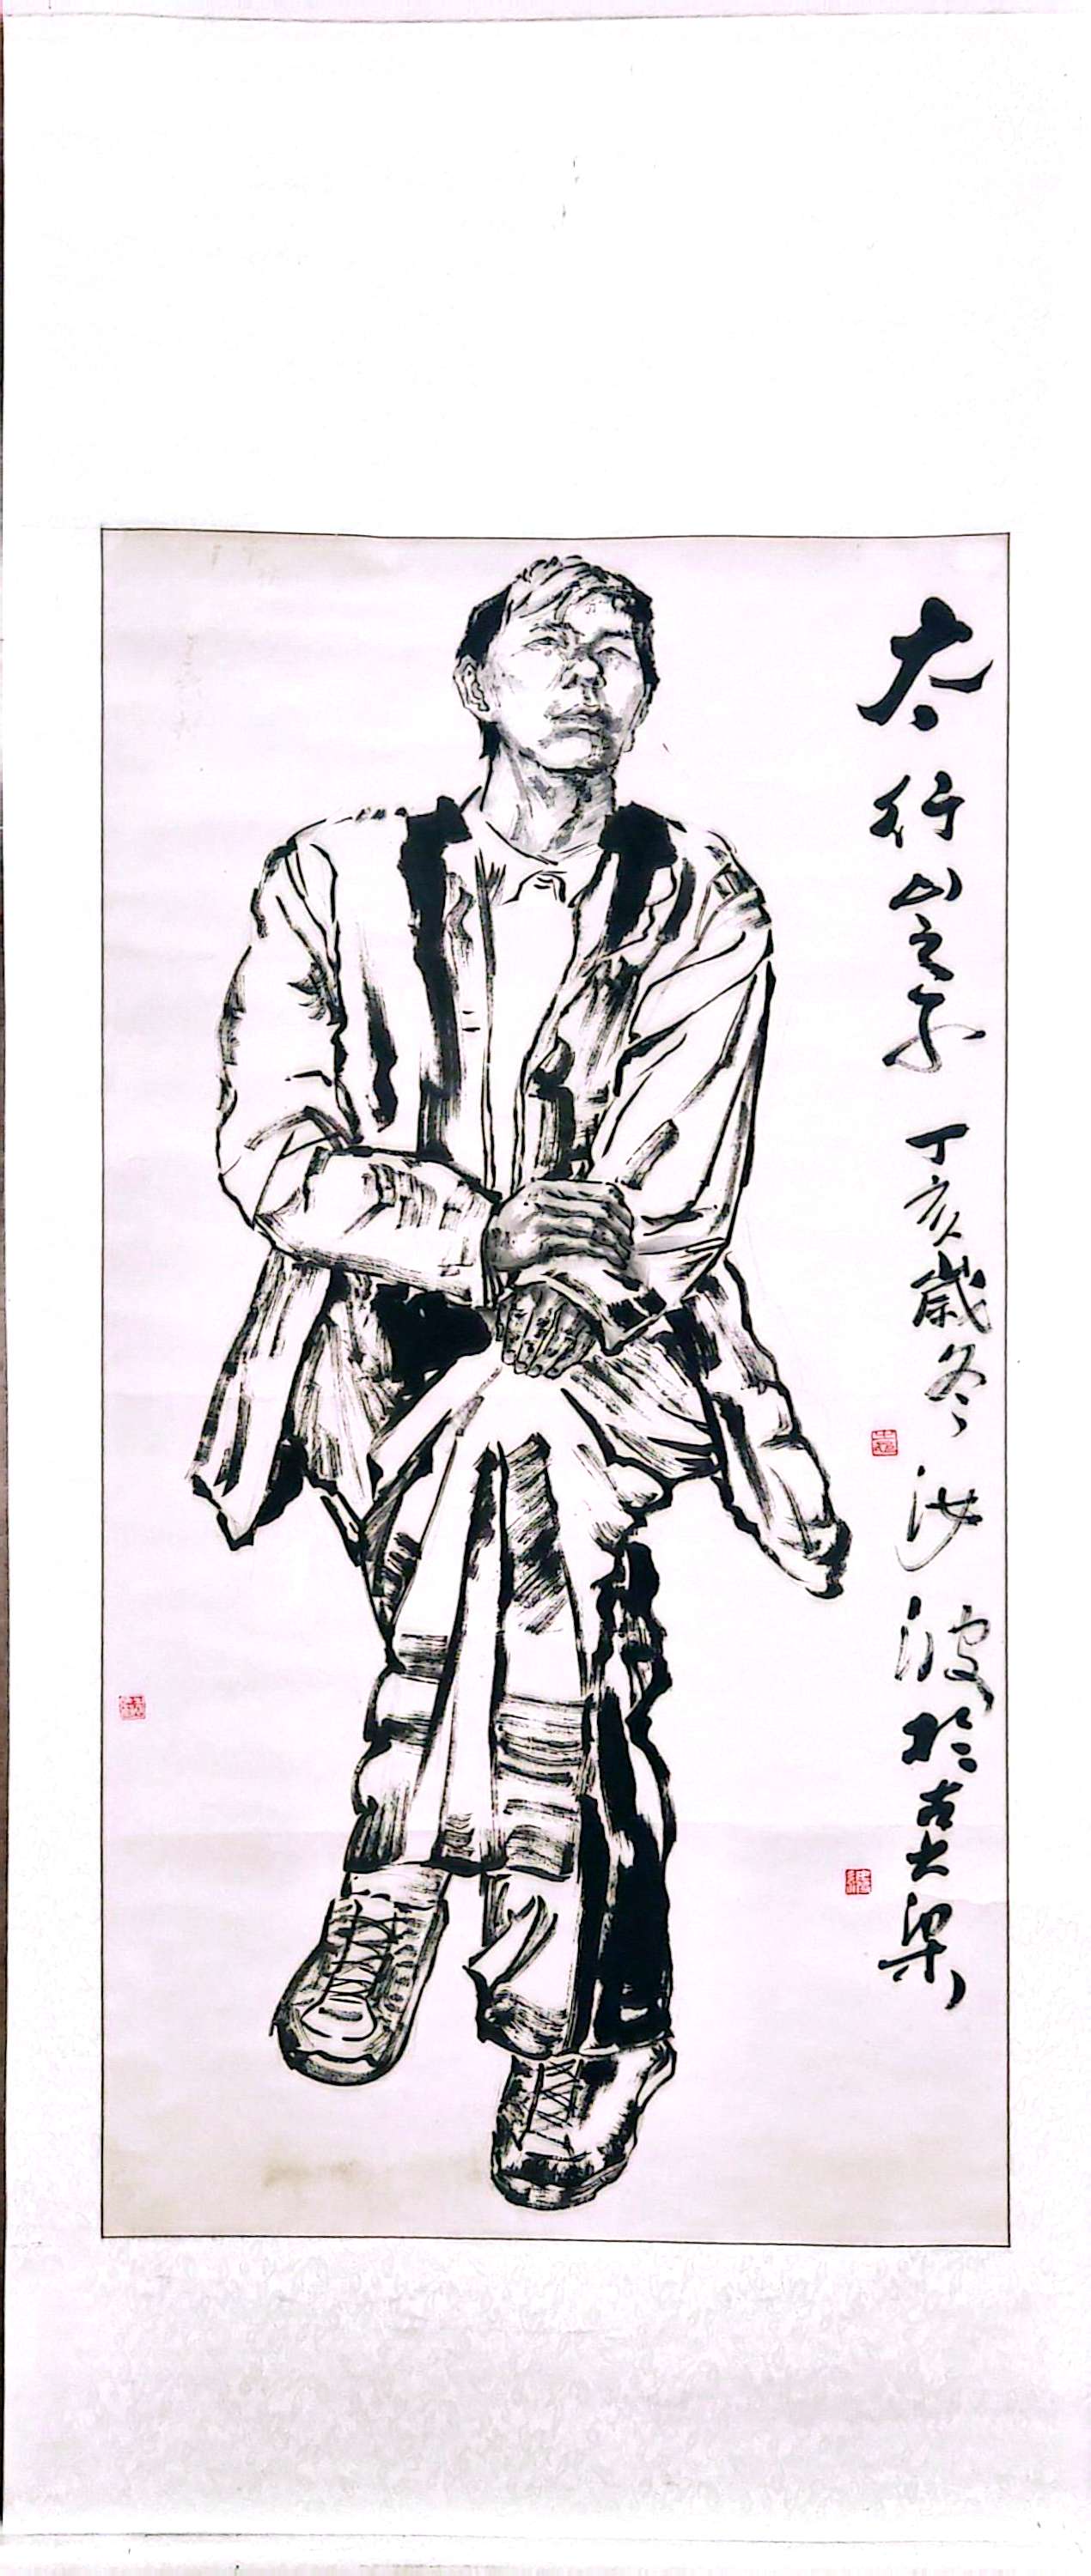 太行山之子 丁亥歲冬 汝波於古大梁